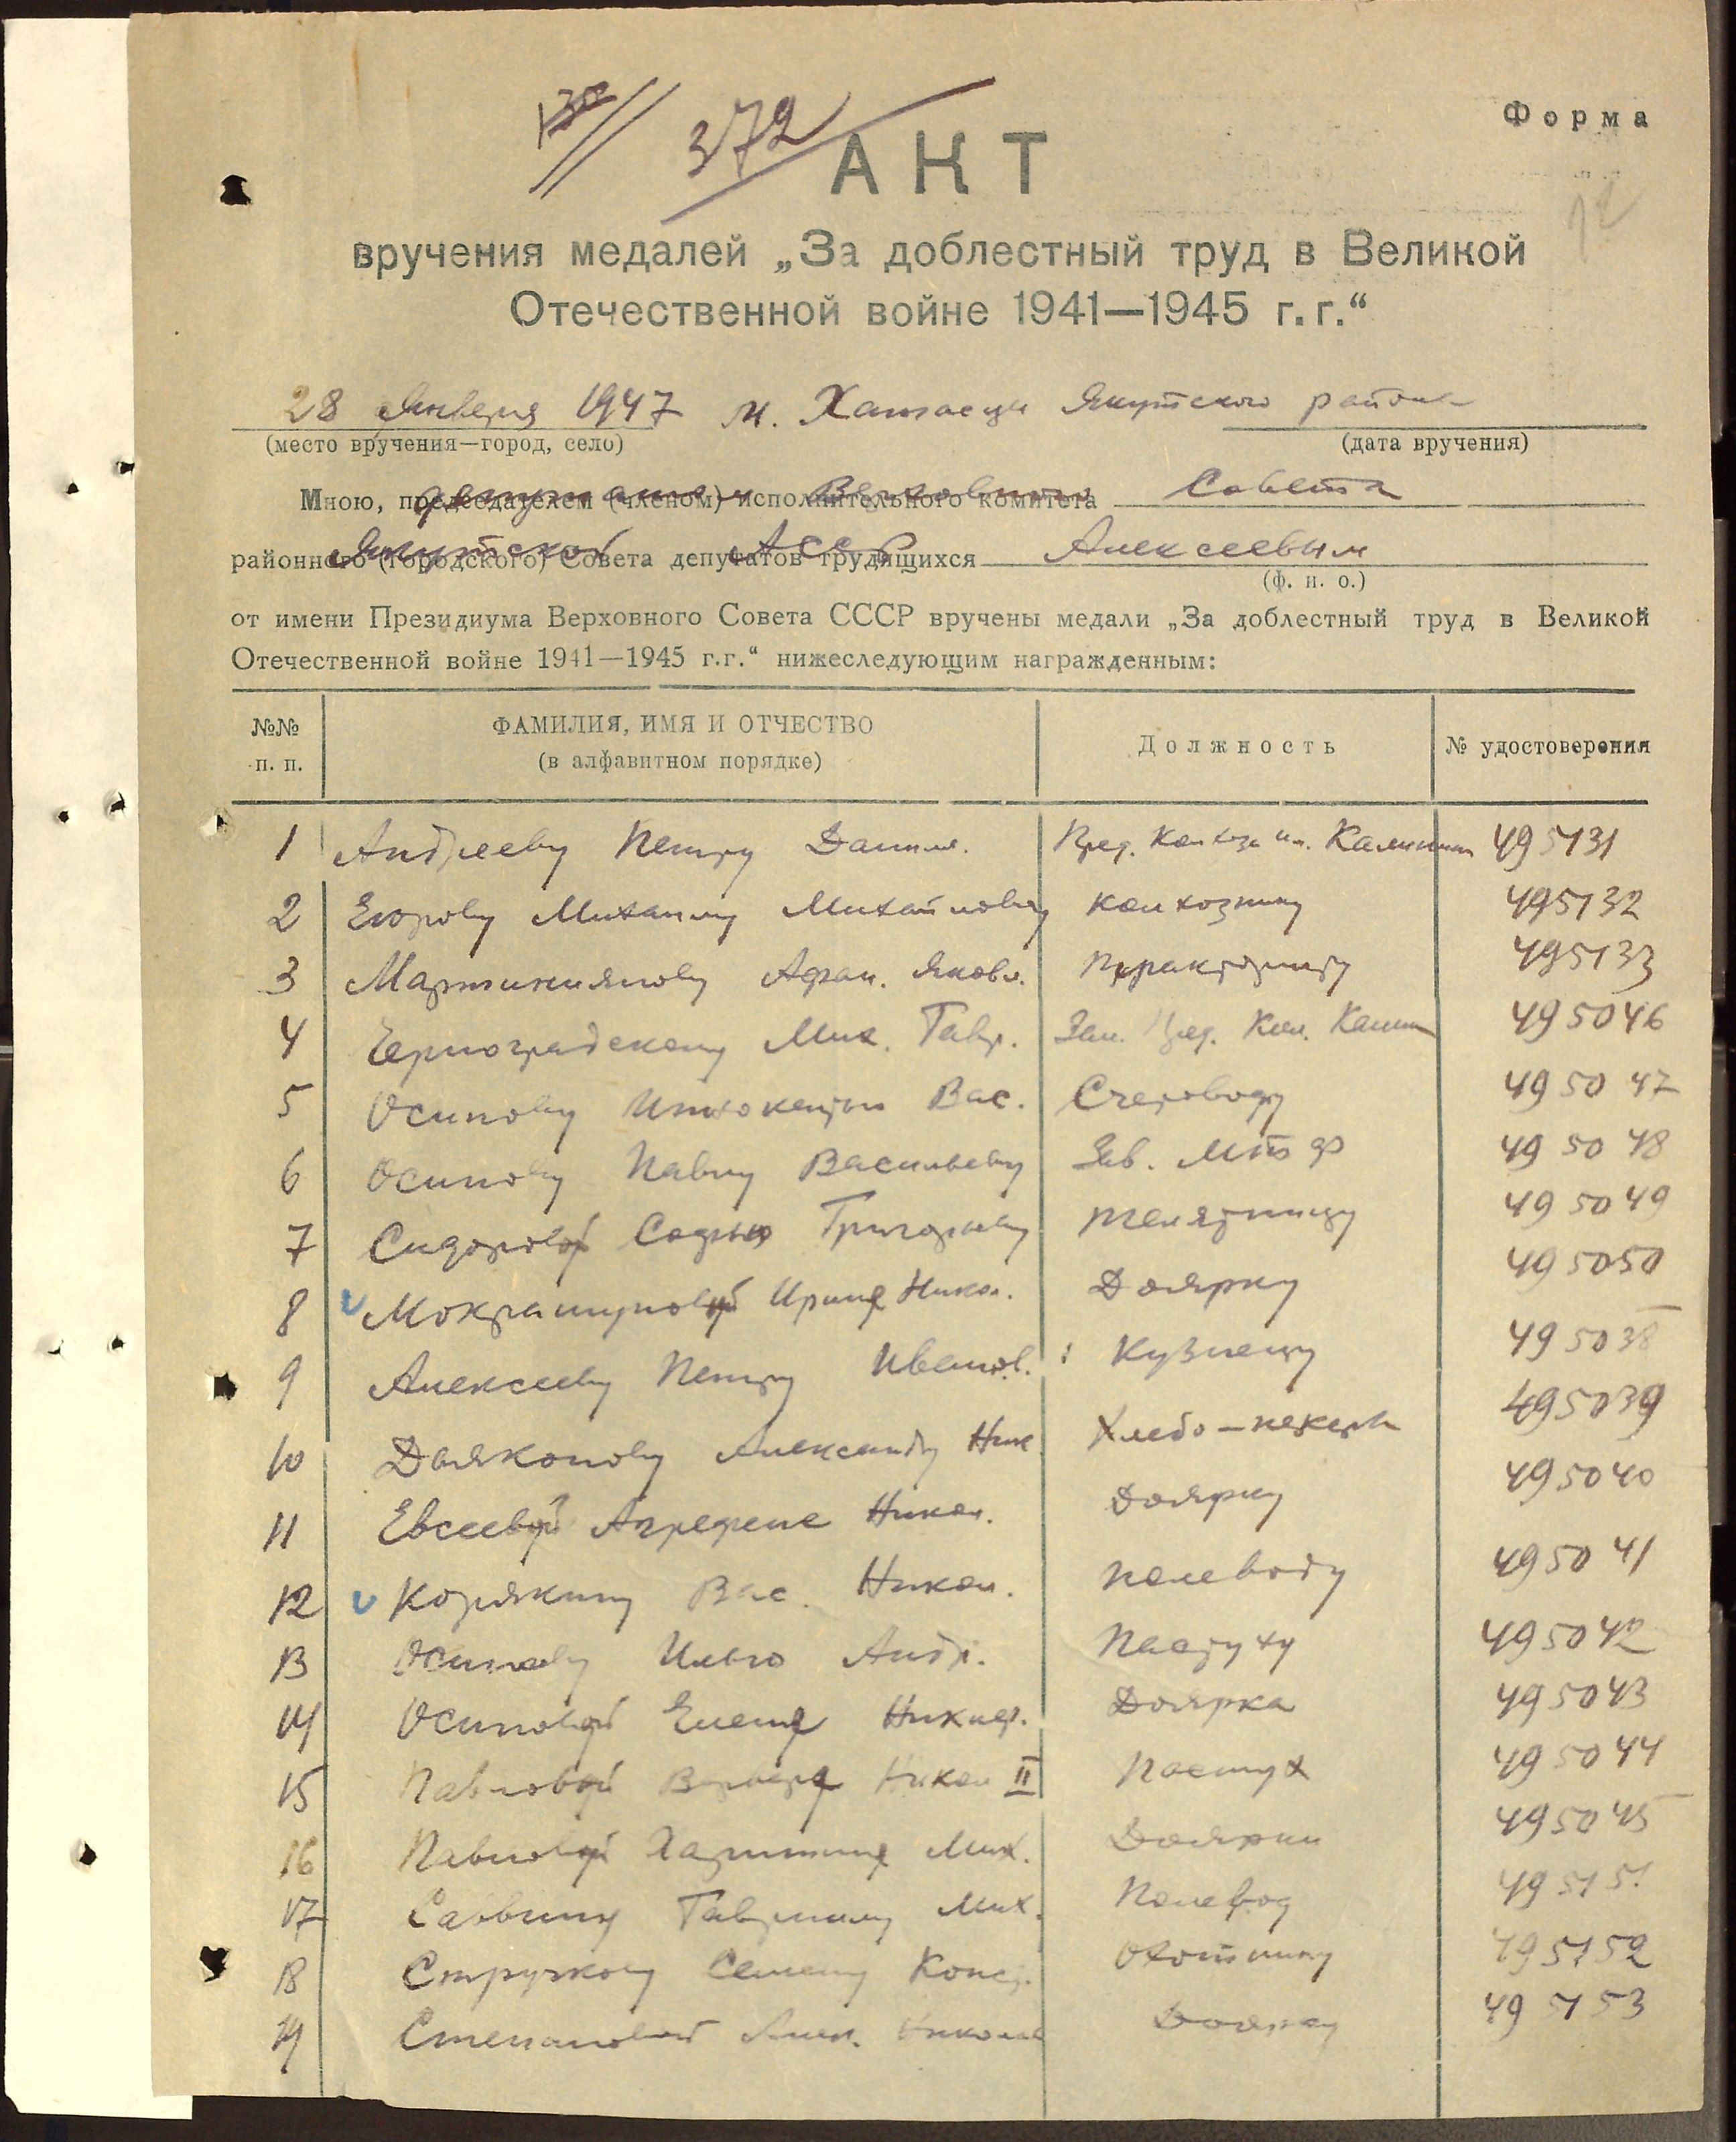 Форма
130
372
АКТ
12
вручения медалей „За доблестный труд в Великой
Отечественной войне 1941—1945 г.г.“
28 января 1947 м. Хатассы Якутского района
(место вручения—город, село) (дата вручения)
депутатом Верховного
Мною, председателем (членом) исполнительного комитета Совета
Якутской АССР
районного (городского) Совета депутатов трудящихся Алексеевым
(ф. и. о.)
от имени Президиума Верховного Совета СССР вручены медали „За доблестный труд в Великой
Отечественной войне 1941—1945 г.г.“ нижеследующим награжденным:
№№ п. п. ФАМИЛИЯ, ИМЯ И ОТЧЕСТВО (в алфавитном порядке) Должность № удостоверения
1 Андрееву Петру Данил. Пред. Колхоза им. Калинина 495131
2 Егорову Михаилу Михайловичу колхознику 495132
3 Мартиниянову Афан. Яковл. трактористу 495133
4 Черноградскому Мих. Гавр. Зам. Пред. Кол. Калин 495046
5 Осипову Иннокентию Вас. Счетоводу 495047
6 Осипову Павлу Васильеву Зав. Мтф 495048
7 Сидоровой Софью Григорьеву телятницу 495049
8 Мокрашуповой Ирине Никол. Доярку 495050
9 Алексееву Петру Иванов. Кузнецу 495038
10 Дьяконову Александру Ник. Хлебо-пекарь 495039
11 Евсеевой Агрефене Никол. Доярку 495040
12 Корякину Вас. Никол. полеводу 495041
13 Осипову Илью Андр. Пастуху 495042
14 Осиповой Елене Никиф. Доярка 495043
15 Павловой Варваре Никол II Пастух 495044
16 Павловой Харитине Мих. Доярки 495045
17 Саввину Гаврилу Мих. Полевод 495151
18 Стручкову Семену Конст. Охотнику 495152
19 Степановой Алек. Никола Доярку 495153